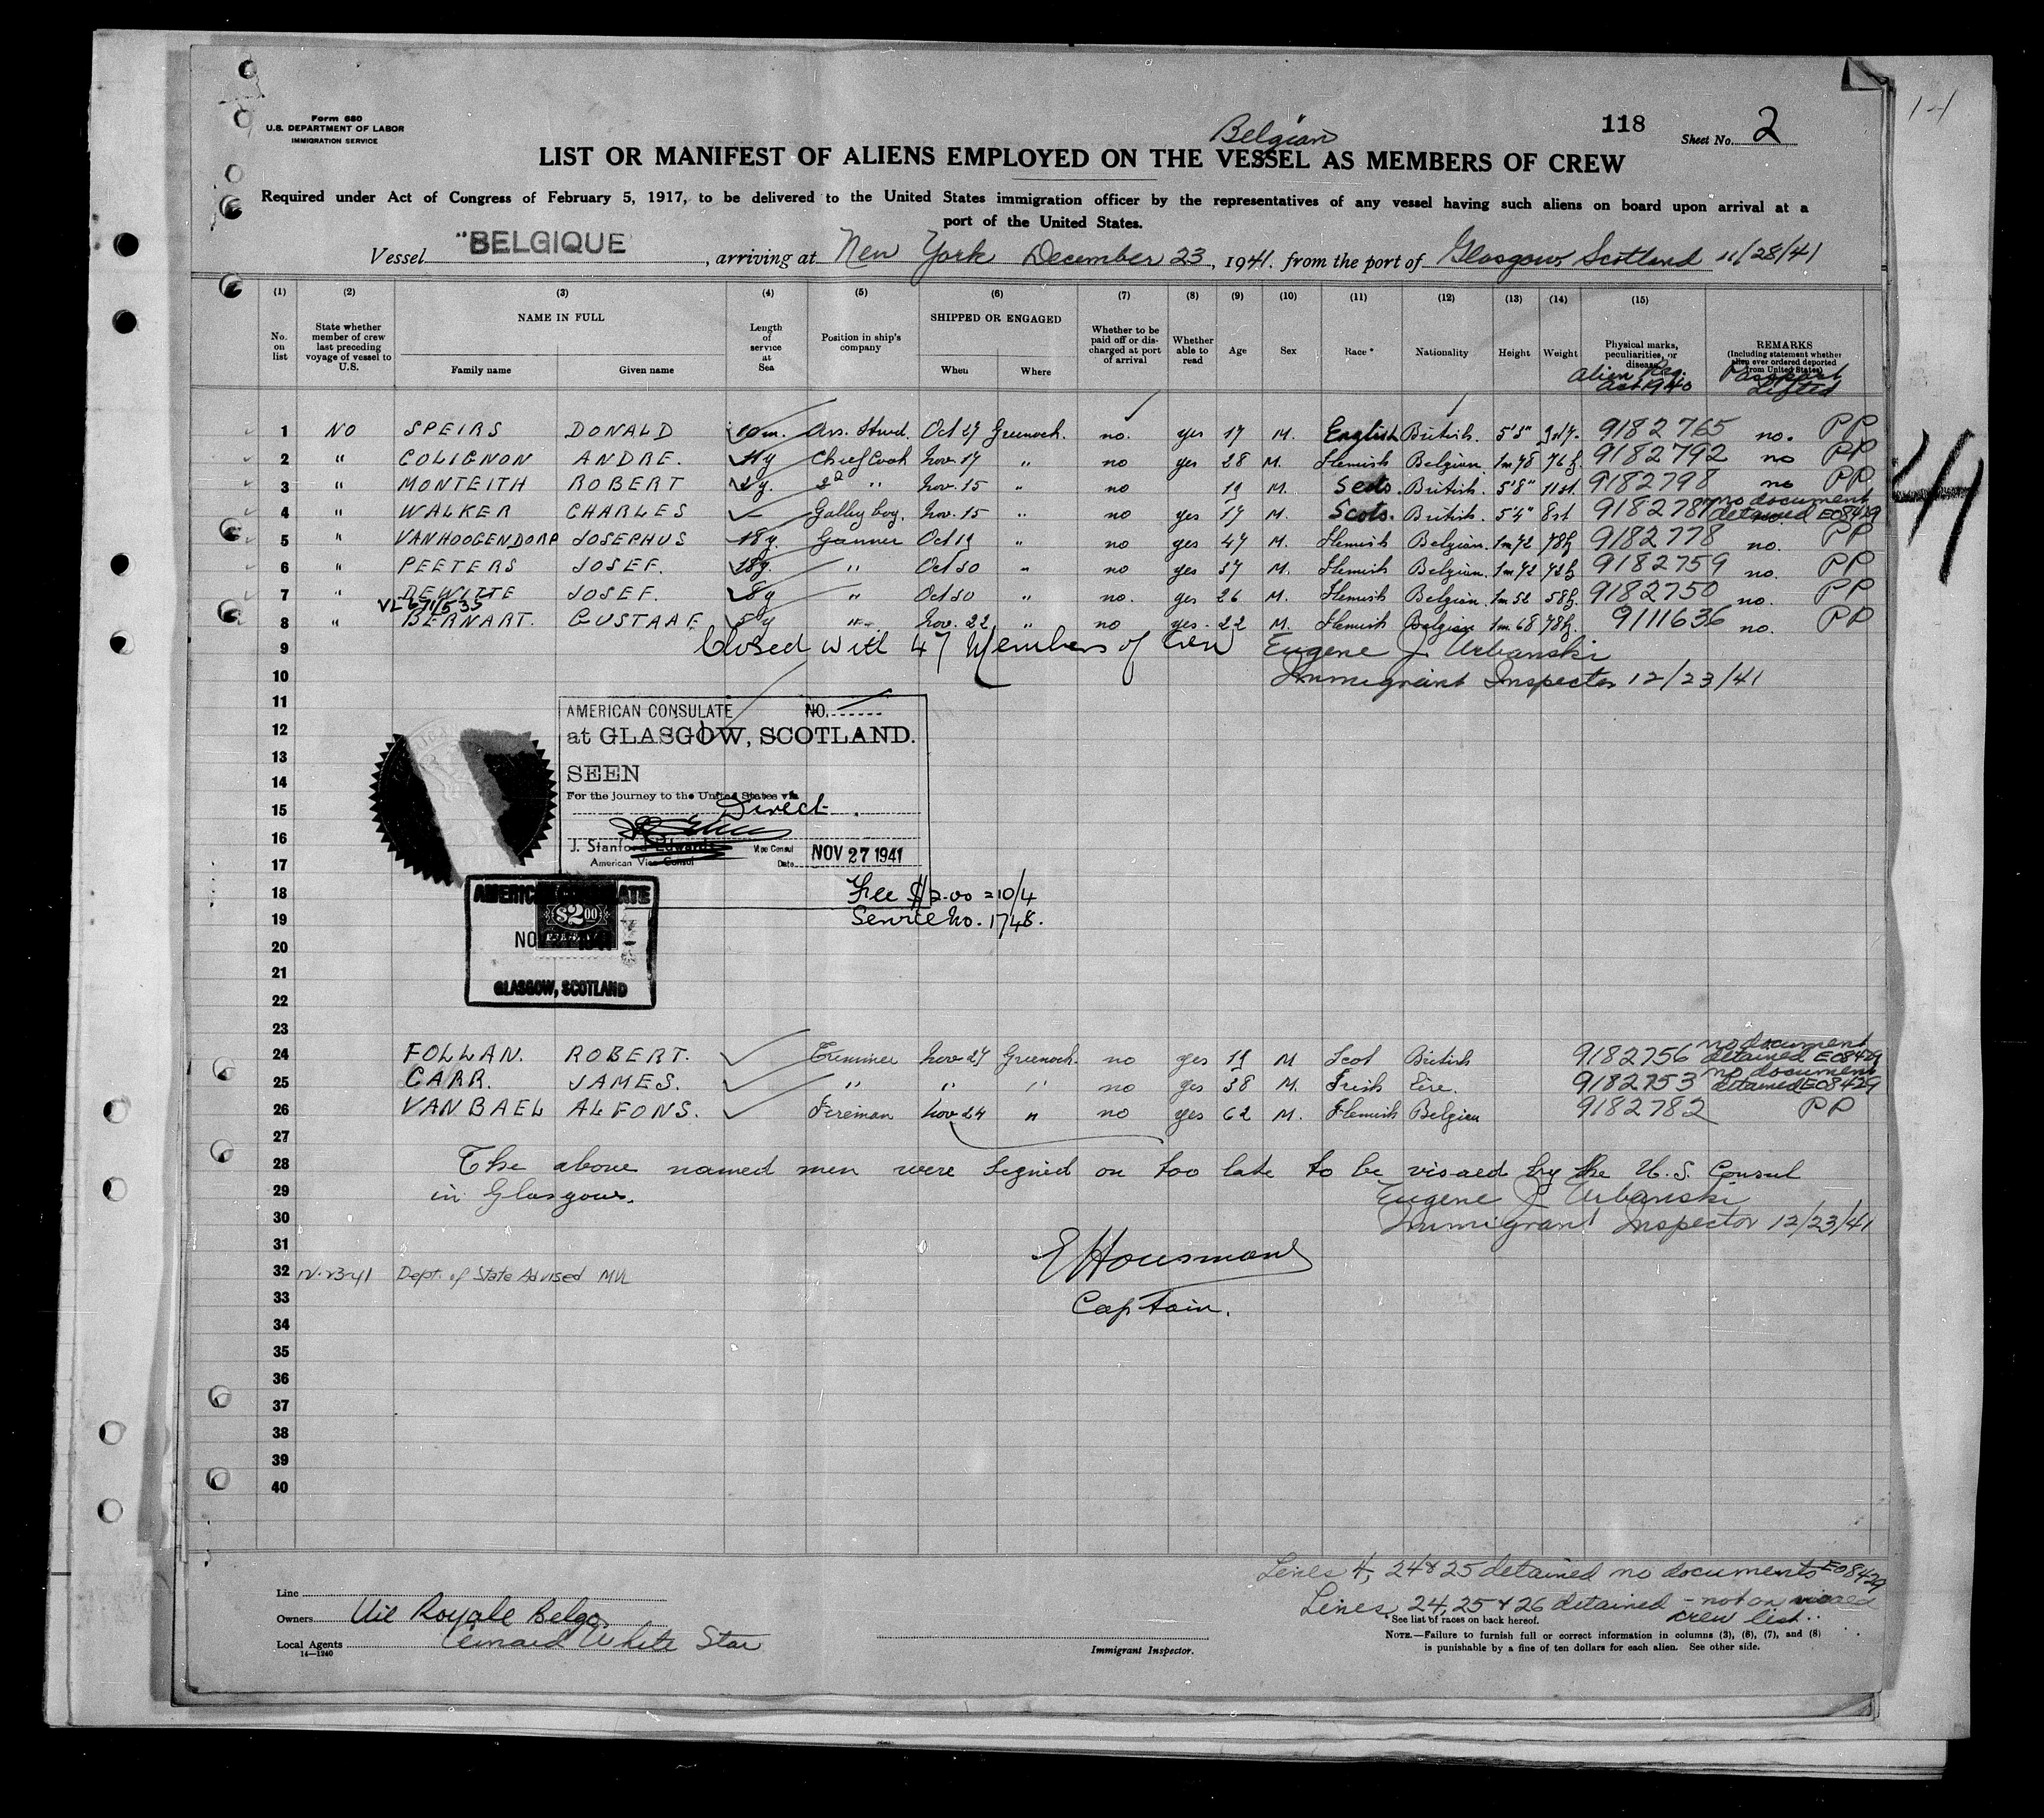 14
Form 680
U.S. DEPARTMENT OF LABOR
IMMIGRATION SERVICE
118
Sheet No. 2
Belgian
LIST OR MANIFEST OF ALIENS EMPLOYED ON THE VESSEL AS MEMBERS OF CREW
Required under Act of Congress of February 5, 1917, to be delivered to the United States immigration officer by the representatives of any vessel having such aliens on board upon arrival at a
port of the United States.
Vessel "BELGIQUE", arriving at New York December 23, 1941. from the port of Glasgow Scotland 11/28/41
(1) (2) (3) (4) (5) (6) (7) (8) (9) (10) (11) (12) (13) (14) (15)
No. on list
State whether member of crew last preceding voyage of vessel to U.S.
NAME IN FULL
Family name
Given name
Length of service at Sea
Position in ship's company
SHIPPED OR ENGAGED
When
Where
Whether to be paid off or discharged at port of arrival
Whether able to read
Age
Sex
Race *
Nationality
Height
Weight
Physical marks, peculiarities, or disease
Alien Reg. Act 1940
REMARKS
(Including statement whether alien ever ordered deported from United States)
Passport lifted
1 NO SPEIRS DONALD 10m. Ass. Stwd. Oct 27 Greenock. no. yes 17 M. English British. 5'3" 9182765 no. PP
2 " COLIGNON ANDRE. 11y Chief Cook Nov. 17 " no yes 28 M. Flemish Belgian. 1m78 76k. 9182792 no PP
3 " MONTEITH ROBERT 2y. 2d " Nov. 15 " no 19 M. Scots. British. 5'8" 11st. 9182798 no PP
4 " WALKER CHARLES — Galley boy. Nov. 15 " no yes 17 M. Scots. British. 5'4" 8st 9182787 no document detained E08429 no.
5 " VANHOOGENDORP JOSEPHUS 18y. Gunner Oct 19 " no yes 47 M. Flemish Belgian. 1m72 78k 9182778 no. PP
6 " PEETERS JOSEF. 18y. " Oct 30 " no yes 37 M. Flemish Belgian. 1m72 72k 9182759 no. PP
7 " DEWITTE JOSEF. 8y " Oct 30 " no. yes 26 M. Flemish Belgian. 1m52 58k. 9182750 no. PP
VL 671/535
8 " BERNART. GUSTAAF. 5y " Nov. 22 " no yes. 22 M. Flemish Belgian 1m68 78k. 9111636 no. PP
9 Closed with 47 Members of Crew Eugene J. Urbanski
10 Immigrant Inspector 12/23/41
11 AMERICAN CONSULATE NO.
12 at GLASGOW, SCOTLAND.
13 SEEN
14 For the journey to the United States via
15 Direct.
16
J. Stanford Edwards Vice Consul
17 American Vice Consul Date NOV 27 1941
18 AMERICAN CONSULATE Fee $2.00 = 10/4
19 $2.00 Service No. 1748.
20
21
GLASGOW, SCOTLAND
22
23
24 FOLLAN. ROBERT. Trimmer Nov 27 Greenock no yes 19 M Scot British 9182756 no document detained E08429
25 CARR. JAMES. " " " no yes 38 M. Irish Eire. 9182753 no document detained E08429
26 VAN BAEL ALFONS. Fireman Nov 24 " no yes 62 M. Flemish Belgian 9182782 PP
27
28 The above named men were signed on too late to be visaed by the U.S. Consul
29 in Glasgow. Eugene J. Urbanski
30 Immigrant Inspector 12/23/41
31 E Housman
32 12-23-41 Dept. of State Advised
33 Captain.
34
35
36
37
38
39
40
44
Lines 4, 24 & 25 detained no documents E08429
Lines 24, 25 & 26 detained - not on visaed crew list..
Line
Owners Cie Royale Belgo
Local Agents Cunard White Star
14—1240
Immigrant Inspector.
* See list of races on back hereof.
NOTE.—Failure to furnish full or correct information in columns (3), (6), (7), and (8)
is punishable by a fine of ten dollars for each alien. See other side.